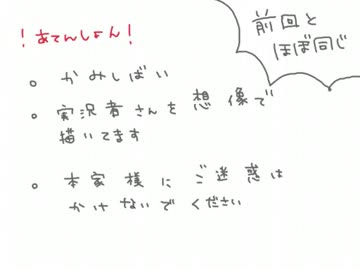 ！あてんしょん！
前回と
ほぼ同じ
。かみしばい
。実況者さんを想像で
描いてます
。本家様にご迷惑は
かけないでください